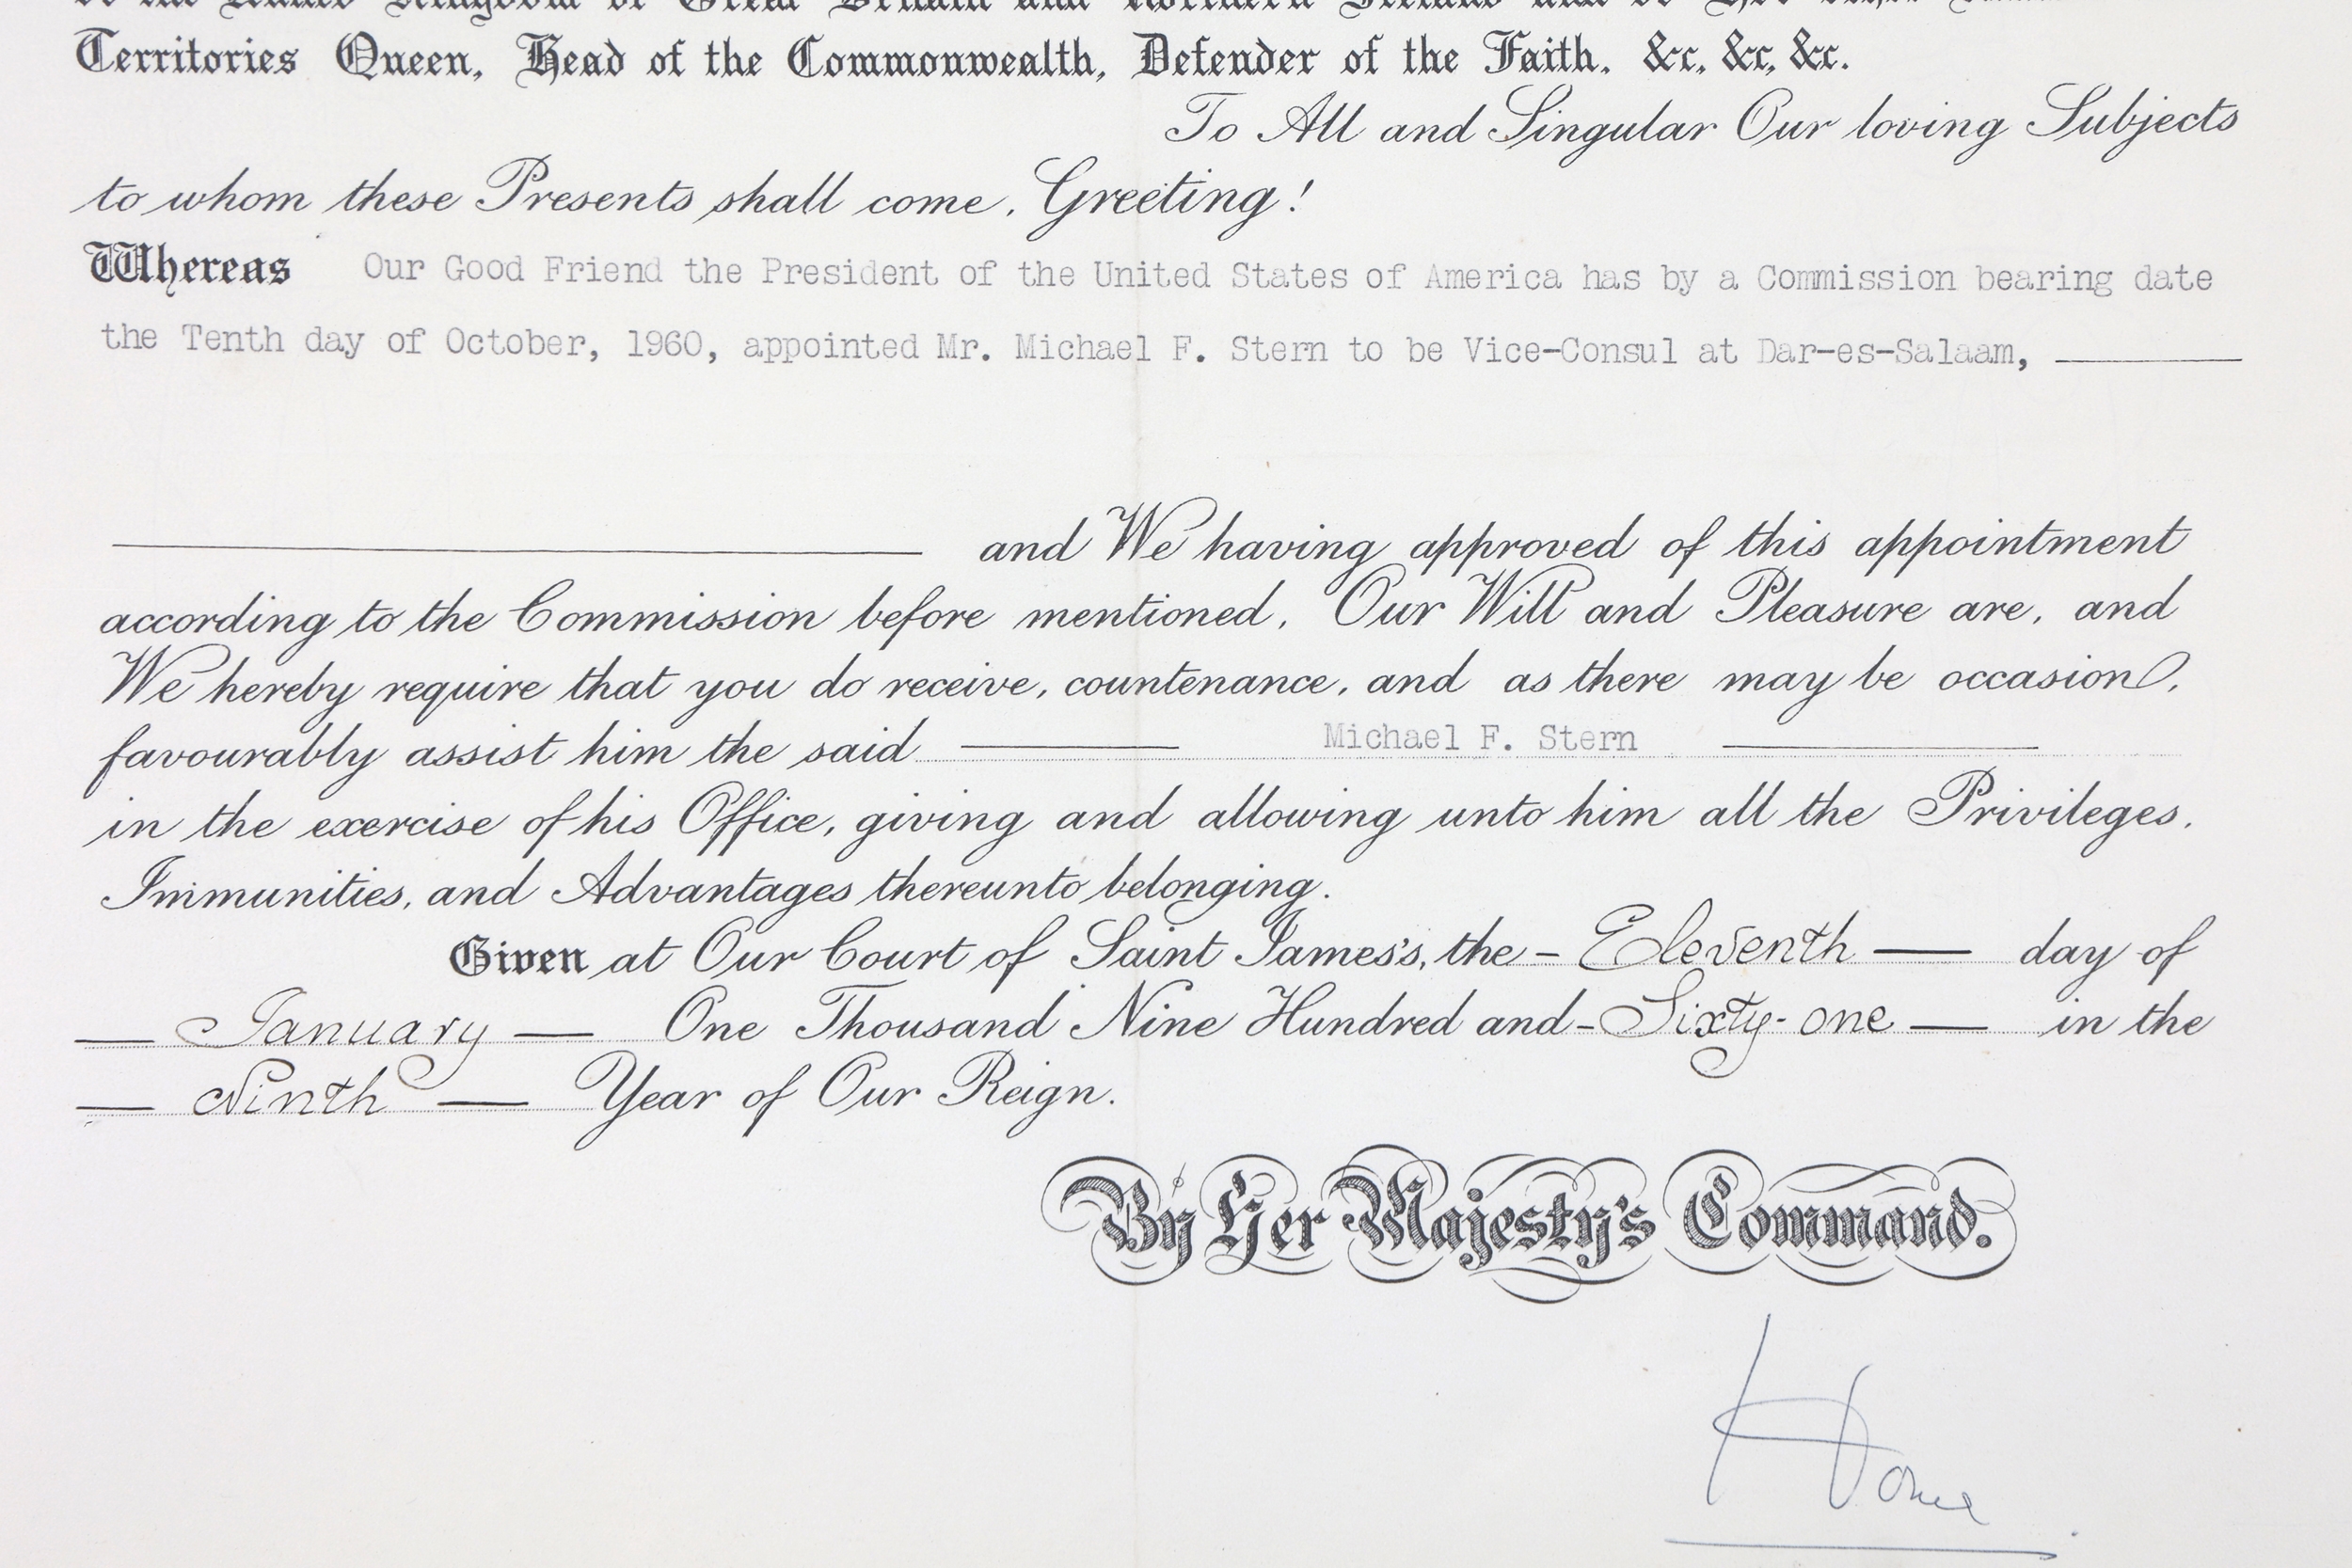 of the United Kingdom of Great Britain and Northern Ireland and of Her other
Territories Queen, Head of the Commonwealth, Defender of the Faith, &c, &c, &c.
To All and Singular Our loving Subjects
to whom these Presents shall come, Greeting!
Whereas Our Good Friend the President of the United States of America has by a Commission bearing date
the Tenth day of October, 1960, appointed Mr. Michael F. Stern to be Vice-Consul at Dar-es-Salaam,
and We having approved of this appointment
according to the Commission before mentioned, Our Will and Pleasure are, and
We hereby require that you do receive, countenance, and as there may be occasion,
favourably assist him the said Michael F. Stern
in the exercise of his Office, giving and allowing unto him all the Privileges,
Immunities, and Advantages thereunto belonging.
Given at Our Court of Saint James's, the - Eleventh — day of
— January — One Thousand Nine Hundred and - Sixty-one — in the
— Ninth — Year of Our Reign.
By Her Majesty's Command.
Home